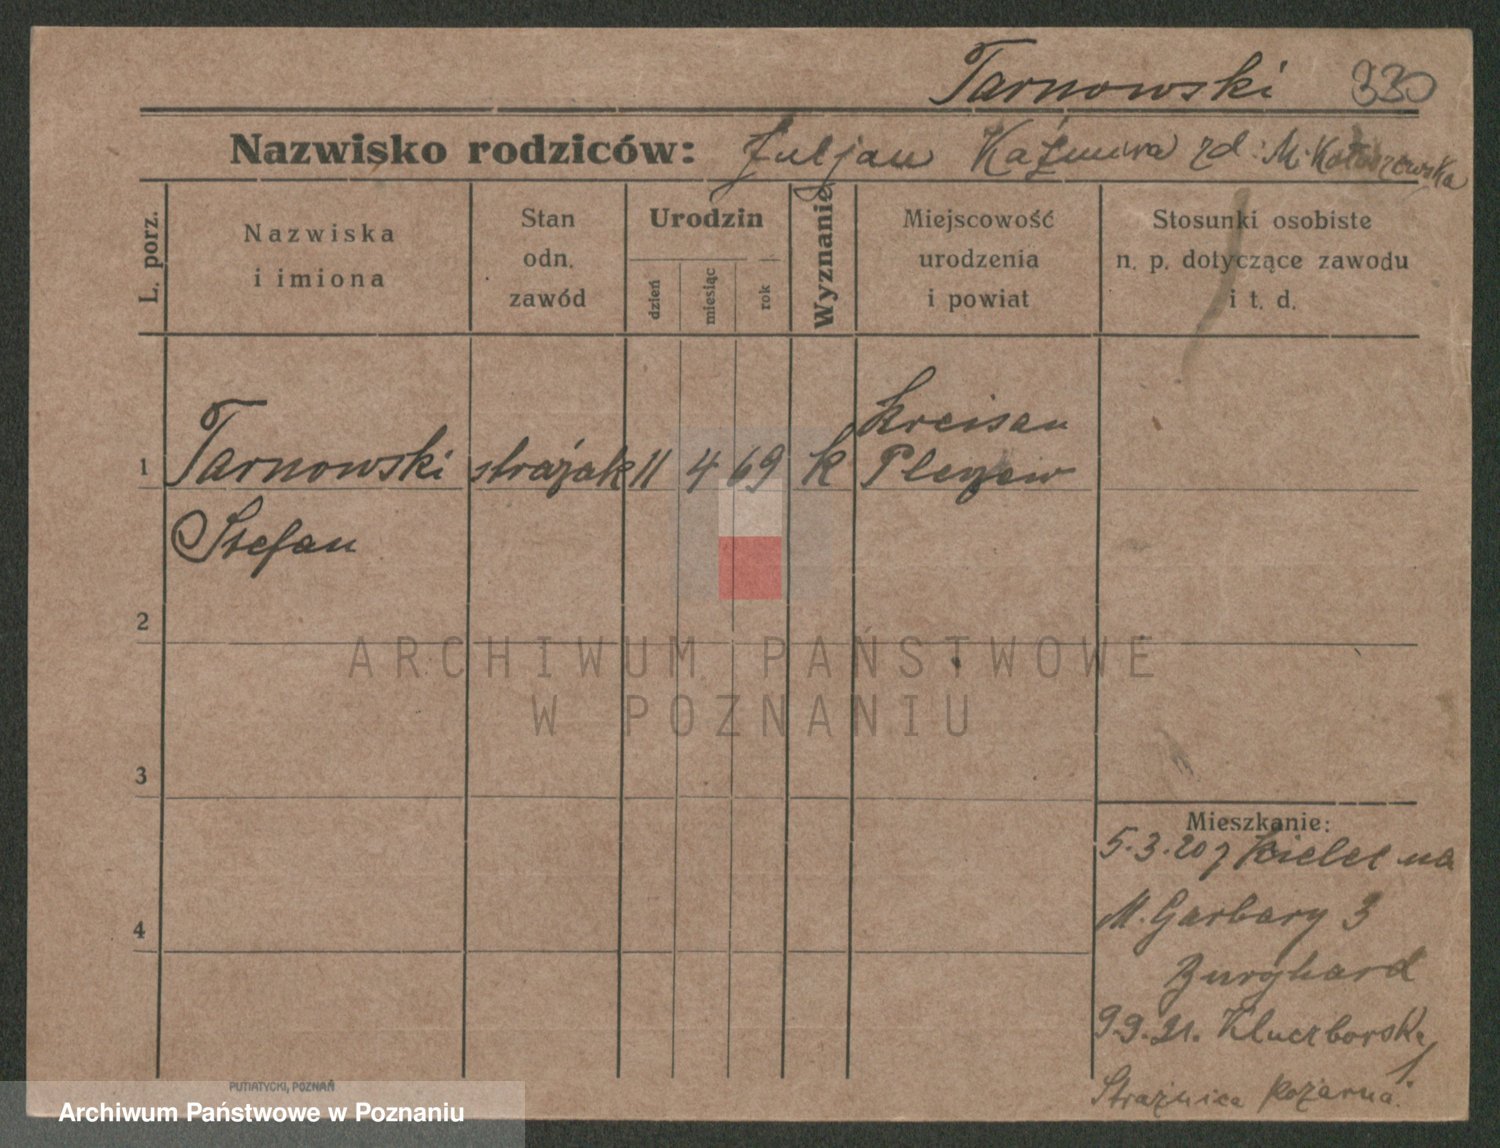 Tarnowski 330
Nazwisko rodziców: Juljan Kaźmira zd: M. Kotoszewska
L. porz.
Nazwiska
i imiona
Stan
odn.
zawód
Urodzin
dzień
miesiąc
rok
Wyznanie
Miejscowość
urodzenia
i powiat
Stosunki osobiste
n. p. dotyczące zawodu
i t. d.
1 Tarnowski strażak 11 4 69 k Kreisan
Pleszew
Stefan
2
3
4
ARCHIWUM PAŃSTWOWE
W POZNANIU
Mieszkanie:
5.3.20 z Kielc na
M. Garbary 3
Burghard
9.9.21. Kluczborska
1.
Strażnica Pożarna.
PUTIATYCKI, POZNAŃ
Archiwum Państwowe w Poznaniu